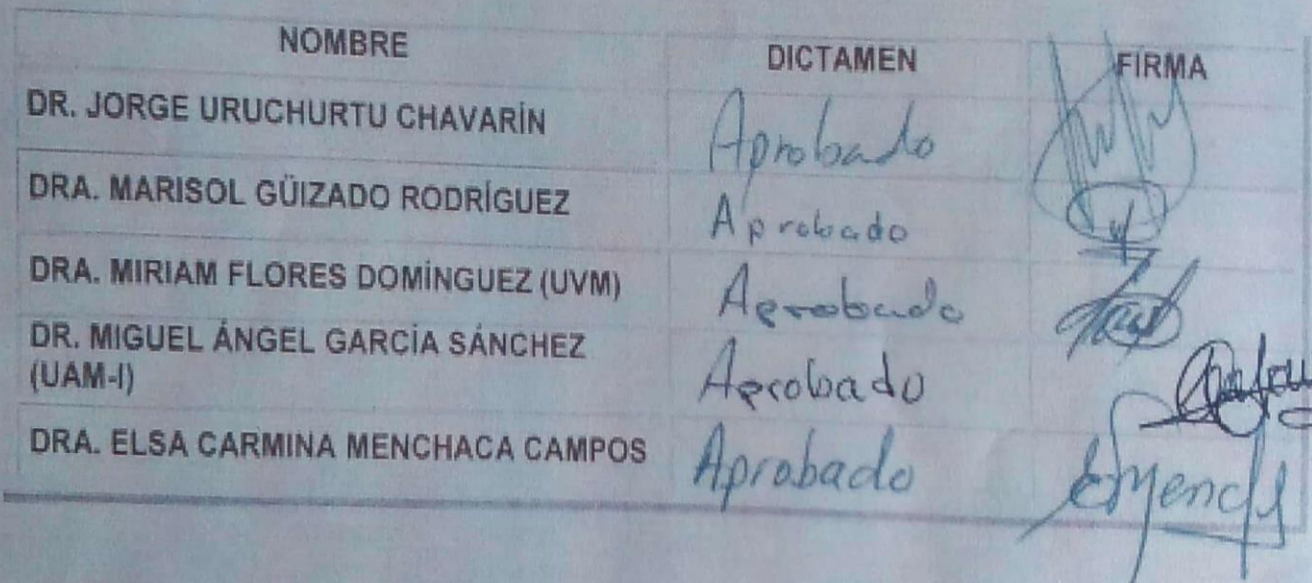 NOMBRE DICTAMEN FIRMA
DR. JORGE URUCHURTU CHAVARÍN Aprobado
DRA. MARISOL GÜIZADO RODRÍGUEZ Aprobado
DRA. MIRIAM FLORES DOMÍNGUEZ (UVM) Aprobado
DR. MIGUEL ÁNGEL GARCÍA SÁNCHEZ
(UAM-I) Aprobado
DRA. ELSA CARMINA MENCHACA CAMPOS Aprobado